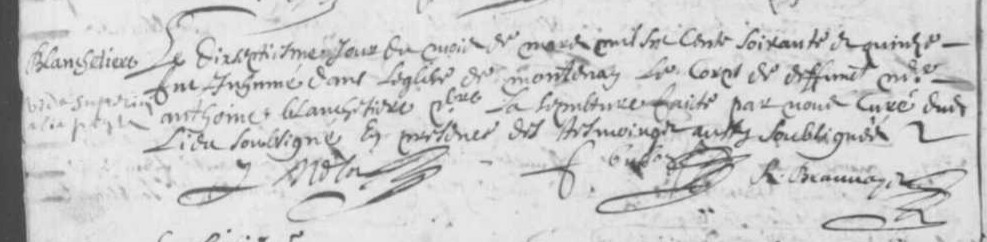 Blanchetiere Le dixseptiesme Jour du mois de mars mil six Cents soixante & quinze
fut Inhumé dans leglise de montenay Le Corps de deffunct mre
anthoine blanchetiere pbre La sepulture faite par nous Curé dud
Lieu soubsigné En presence des tesmoings aussy soubsignés
R. Beauvays